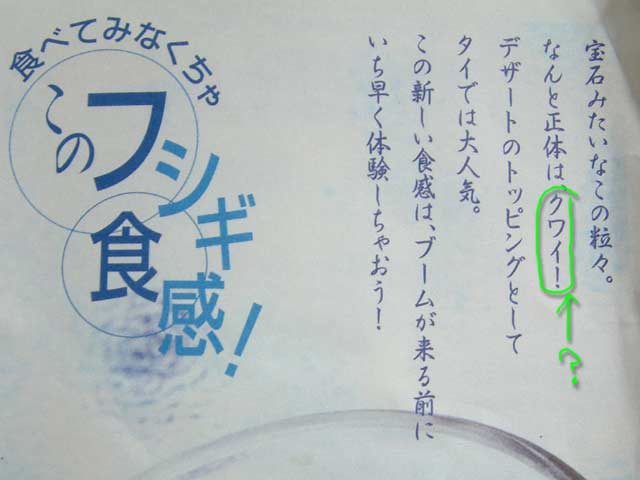 食べてみなくちゃ
このフシギ
食感!
宝石みたいなこの粒々。
なんと正体は、クワイ!
デザートのトッピングとして
タイでは大人気。
この新しい食感は、ブームが来る前に
いち早く体験しちゃおう!
?